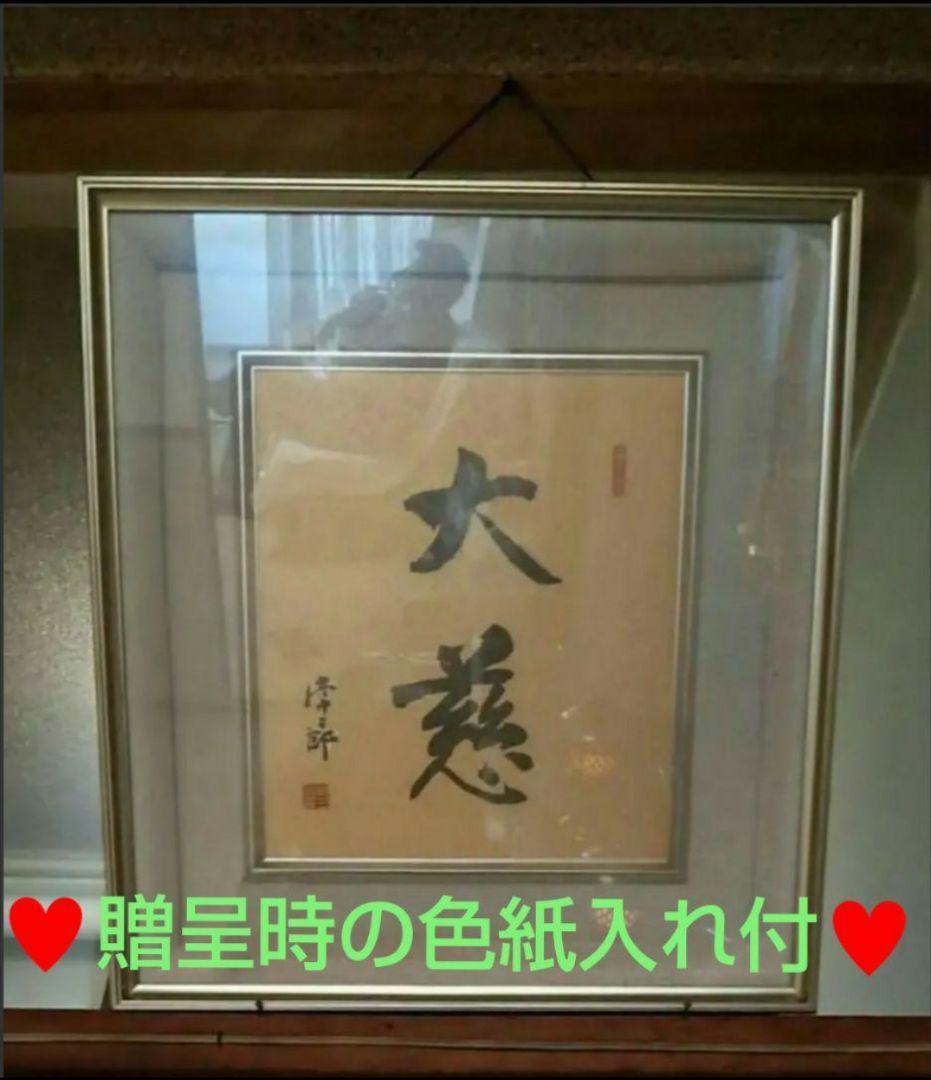 大慈
♥贈呈時の色紙入れ付♥